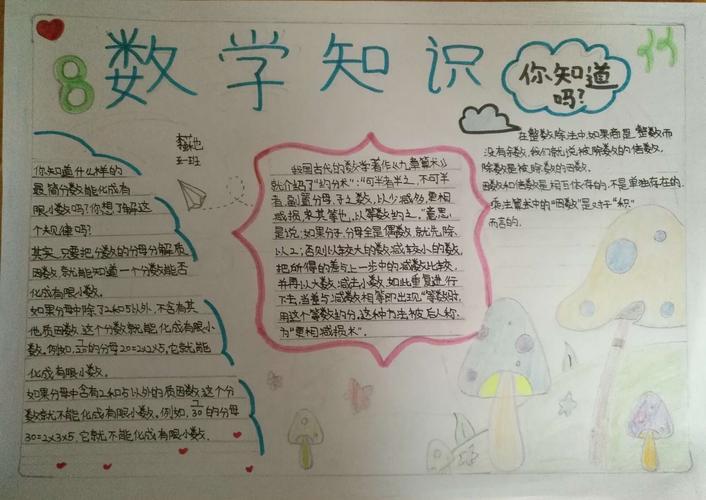 数学知识
你知道
吗?
五一班
你知道什么样的
最简分数能化成有
限小数吗?你想了解这
个规律吗?
其实,只要把分数的分母分解质
因数,就能知道一个分数能否
化成有限小数。
如果分母中除了2和5以外,不含有其
他质因数,这个分数就能化成有限小
数。例如,的分母20=2×2×5,它就能
化成有限小数。
如果分母中含有2和5以外的质因数,这个分
数就不能化成有限小数。例如,7/30的分母
30=2×3×5,它就不能化成有限小数.
我国古代的数学著作《九章算术》
就介绍了"约分术":"可半者半之,不可半
者,副置分母、子之数,以少减多,更相
减损,求其等也,以等数约之。"意思
是说:如果分子、分母全是偶数,就先除
以2;否则以较大的数减较小的数,
把所得的差与上一步中的减数比较,
并再以大数减去小数,如此重复进行
下去,当差与减数相等即出现"等数"时,
用这个等数约分,这种方法被后人称
为"更相减损术".
在整数除法中,如果商是整数而
没有余数,我们就说被除数的倍数,
除数是被除数的因数。
因数和倍数是相互依存的,不是单独存在的.
乘法算术中的"因数"是对于"积"
而言的.